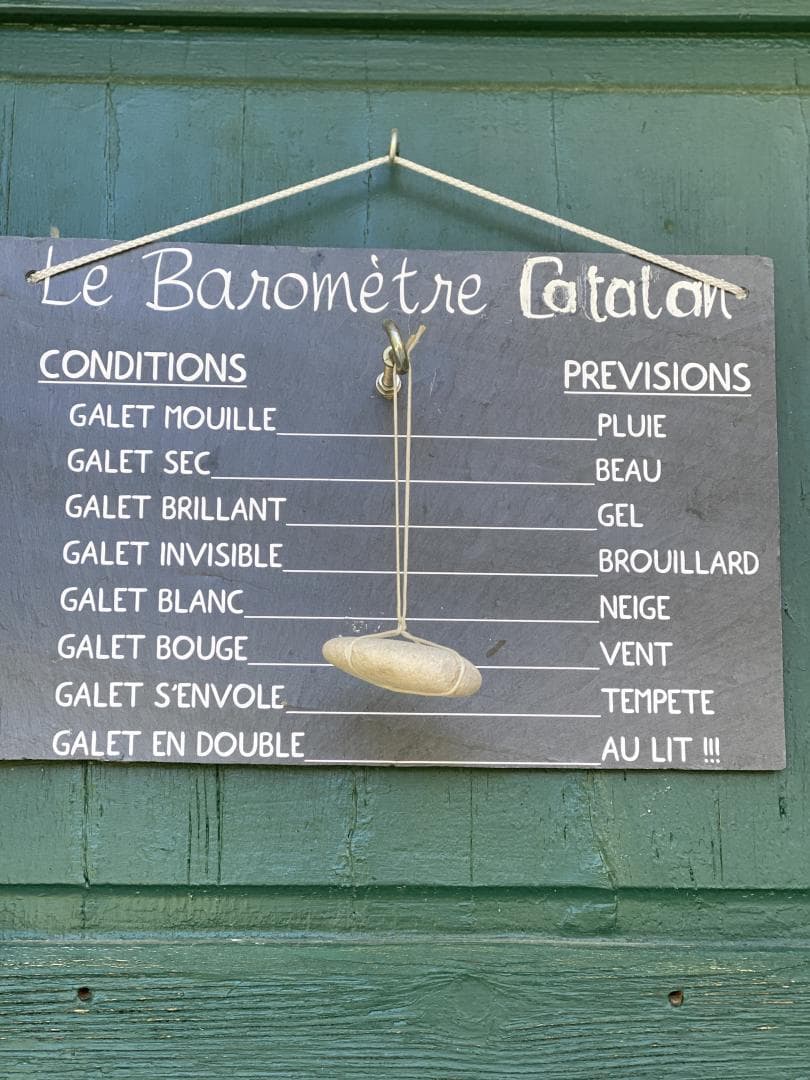 Le Baromètre Catalan
CONDITIONS PREVISIONS
GALET MOUILLE PLUIE
GALET SEC BEAU
GALET BRILLANT GEL
GALET INVISIBLE BROUILLARD
GALET BLANC NEIGE
GALET BOUGE VENT
GALET S'ENVOLE TEMPETE
GALET EN DOUBLE AU LIT !!!